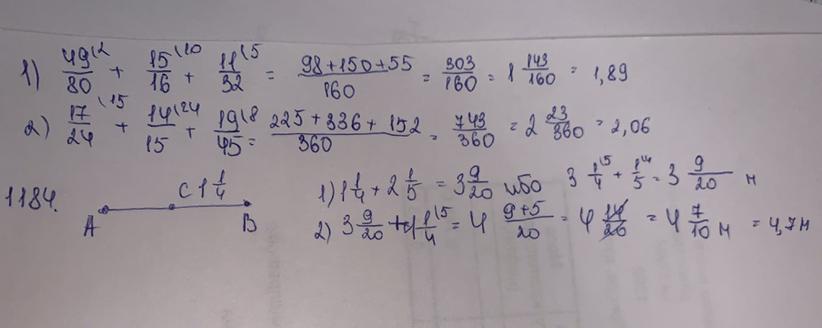 1) 49/80 \2 + 15/16 \10 + 11/32 \5 = (98+150+55)/160 = 303/160 = 1 143/160 = 1,89
2) 17/24 \15 + 14/15 \24 + 19/45 \8 = (225+336+152)/360 = 743/360 = 2 23/360 = 2,06
1184. A C 1 1/4 B
1) 1 1/4 + 2 1/5 = 3 9/20 ибо 3 1/4 \5 + 1/5 \4 = 3 9/20 м
2) 3 9/20 + 1 1/4 \5 = 4 (9+5)/20 = 4 14/20 = 4 7/10 м = 4,7м